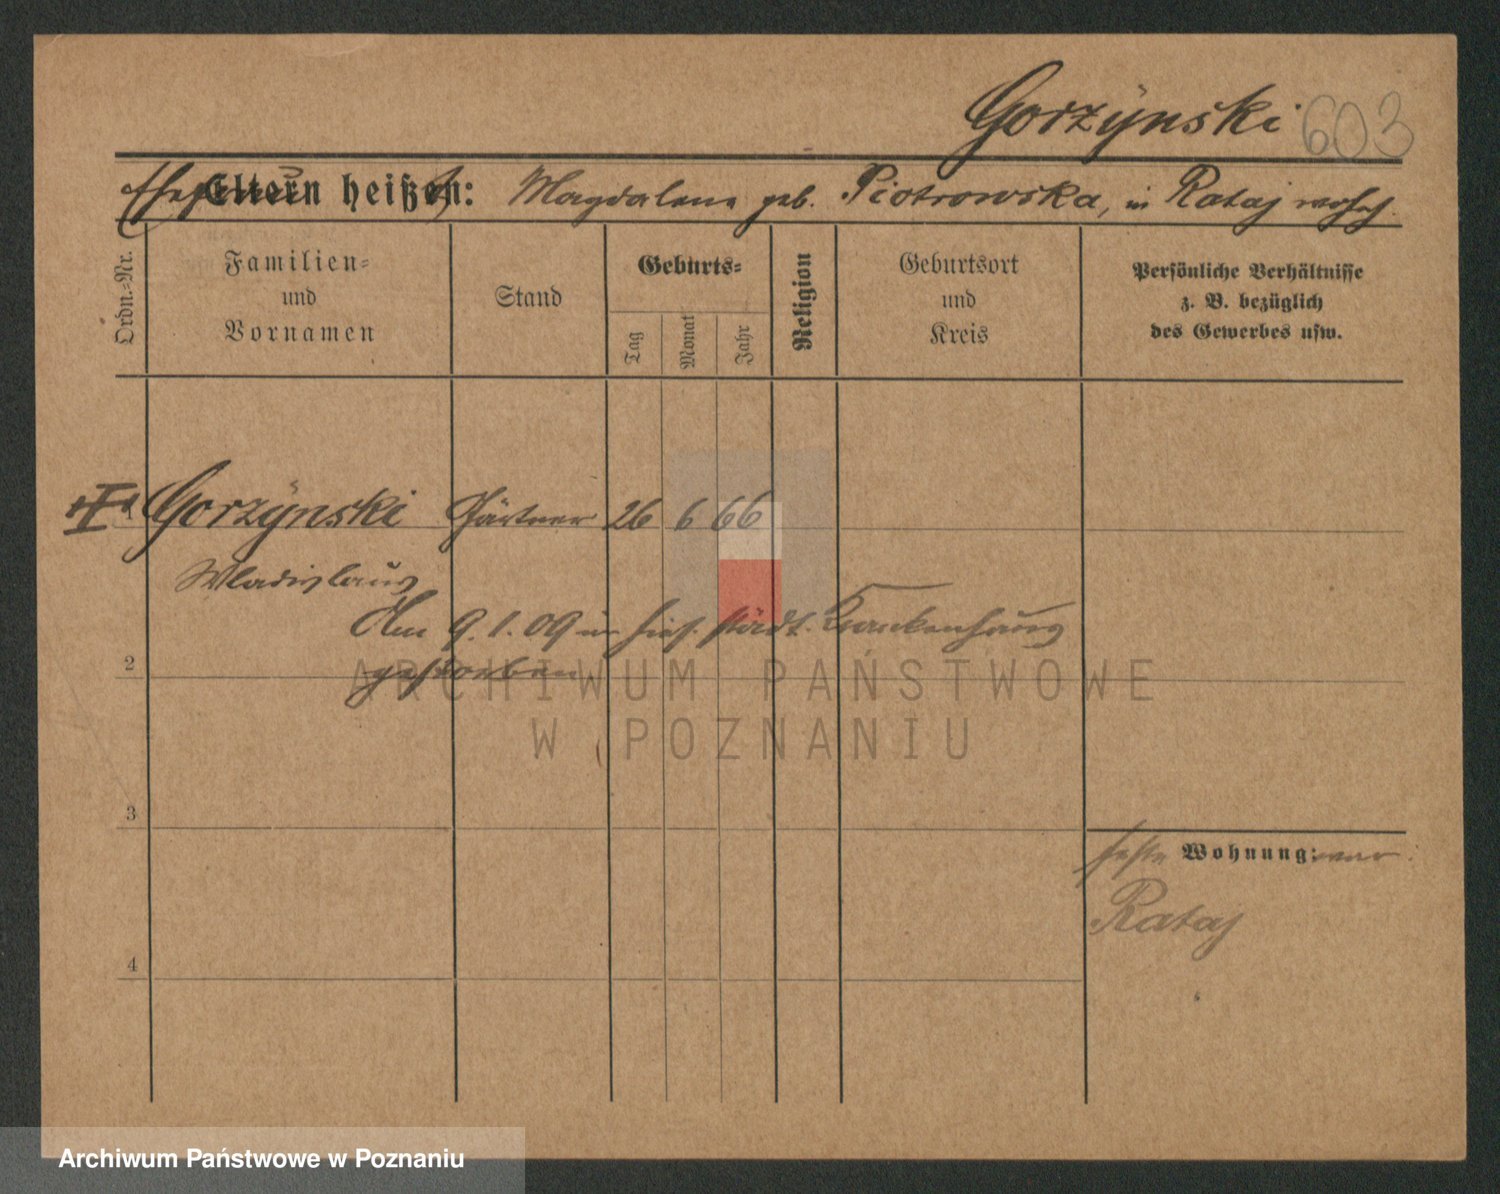 Gorzÿnski 603
Ehefrau Eltern heißen: Magdalena geb. Piotrowska, in Rataj wohnh.
Ordn.-Nr.
Familien-
und
Vornamen
Stand
Geburts-
Tag
Monat
Jahr
Religion
Geburtsort
und
Kreis
Persönliche Verhältnisse
z. B. bezüglich
des Gewerbes usw.
1 Gorzÿnski Gärtner 26 6 66
Wladislaus
Am 9.1.09 im hies. städt. Krankenhaus
2 gestorben
ARCHIWUM PAŃSTWOWE
W POZNANIU
3
feste Wohnung: war
Rataj
4
Archiwum Państwowe w Poznaniu